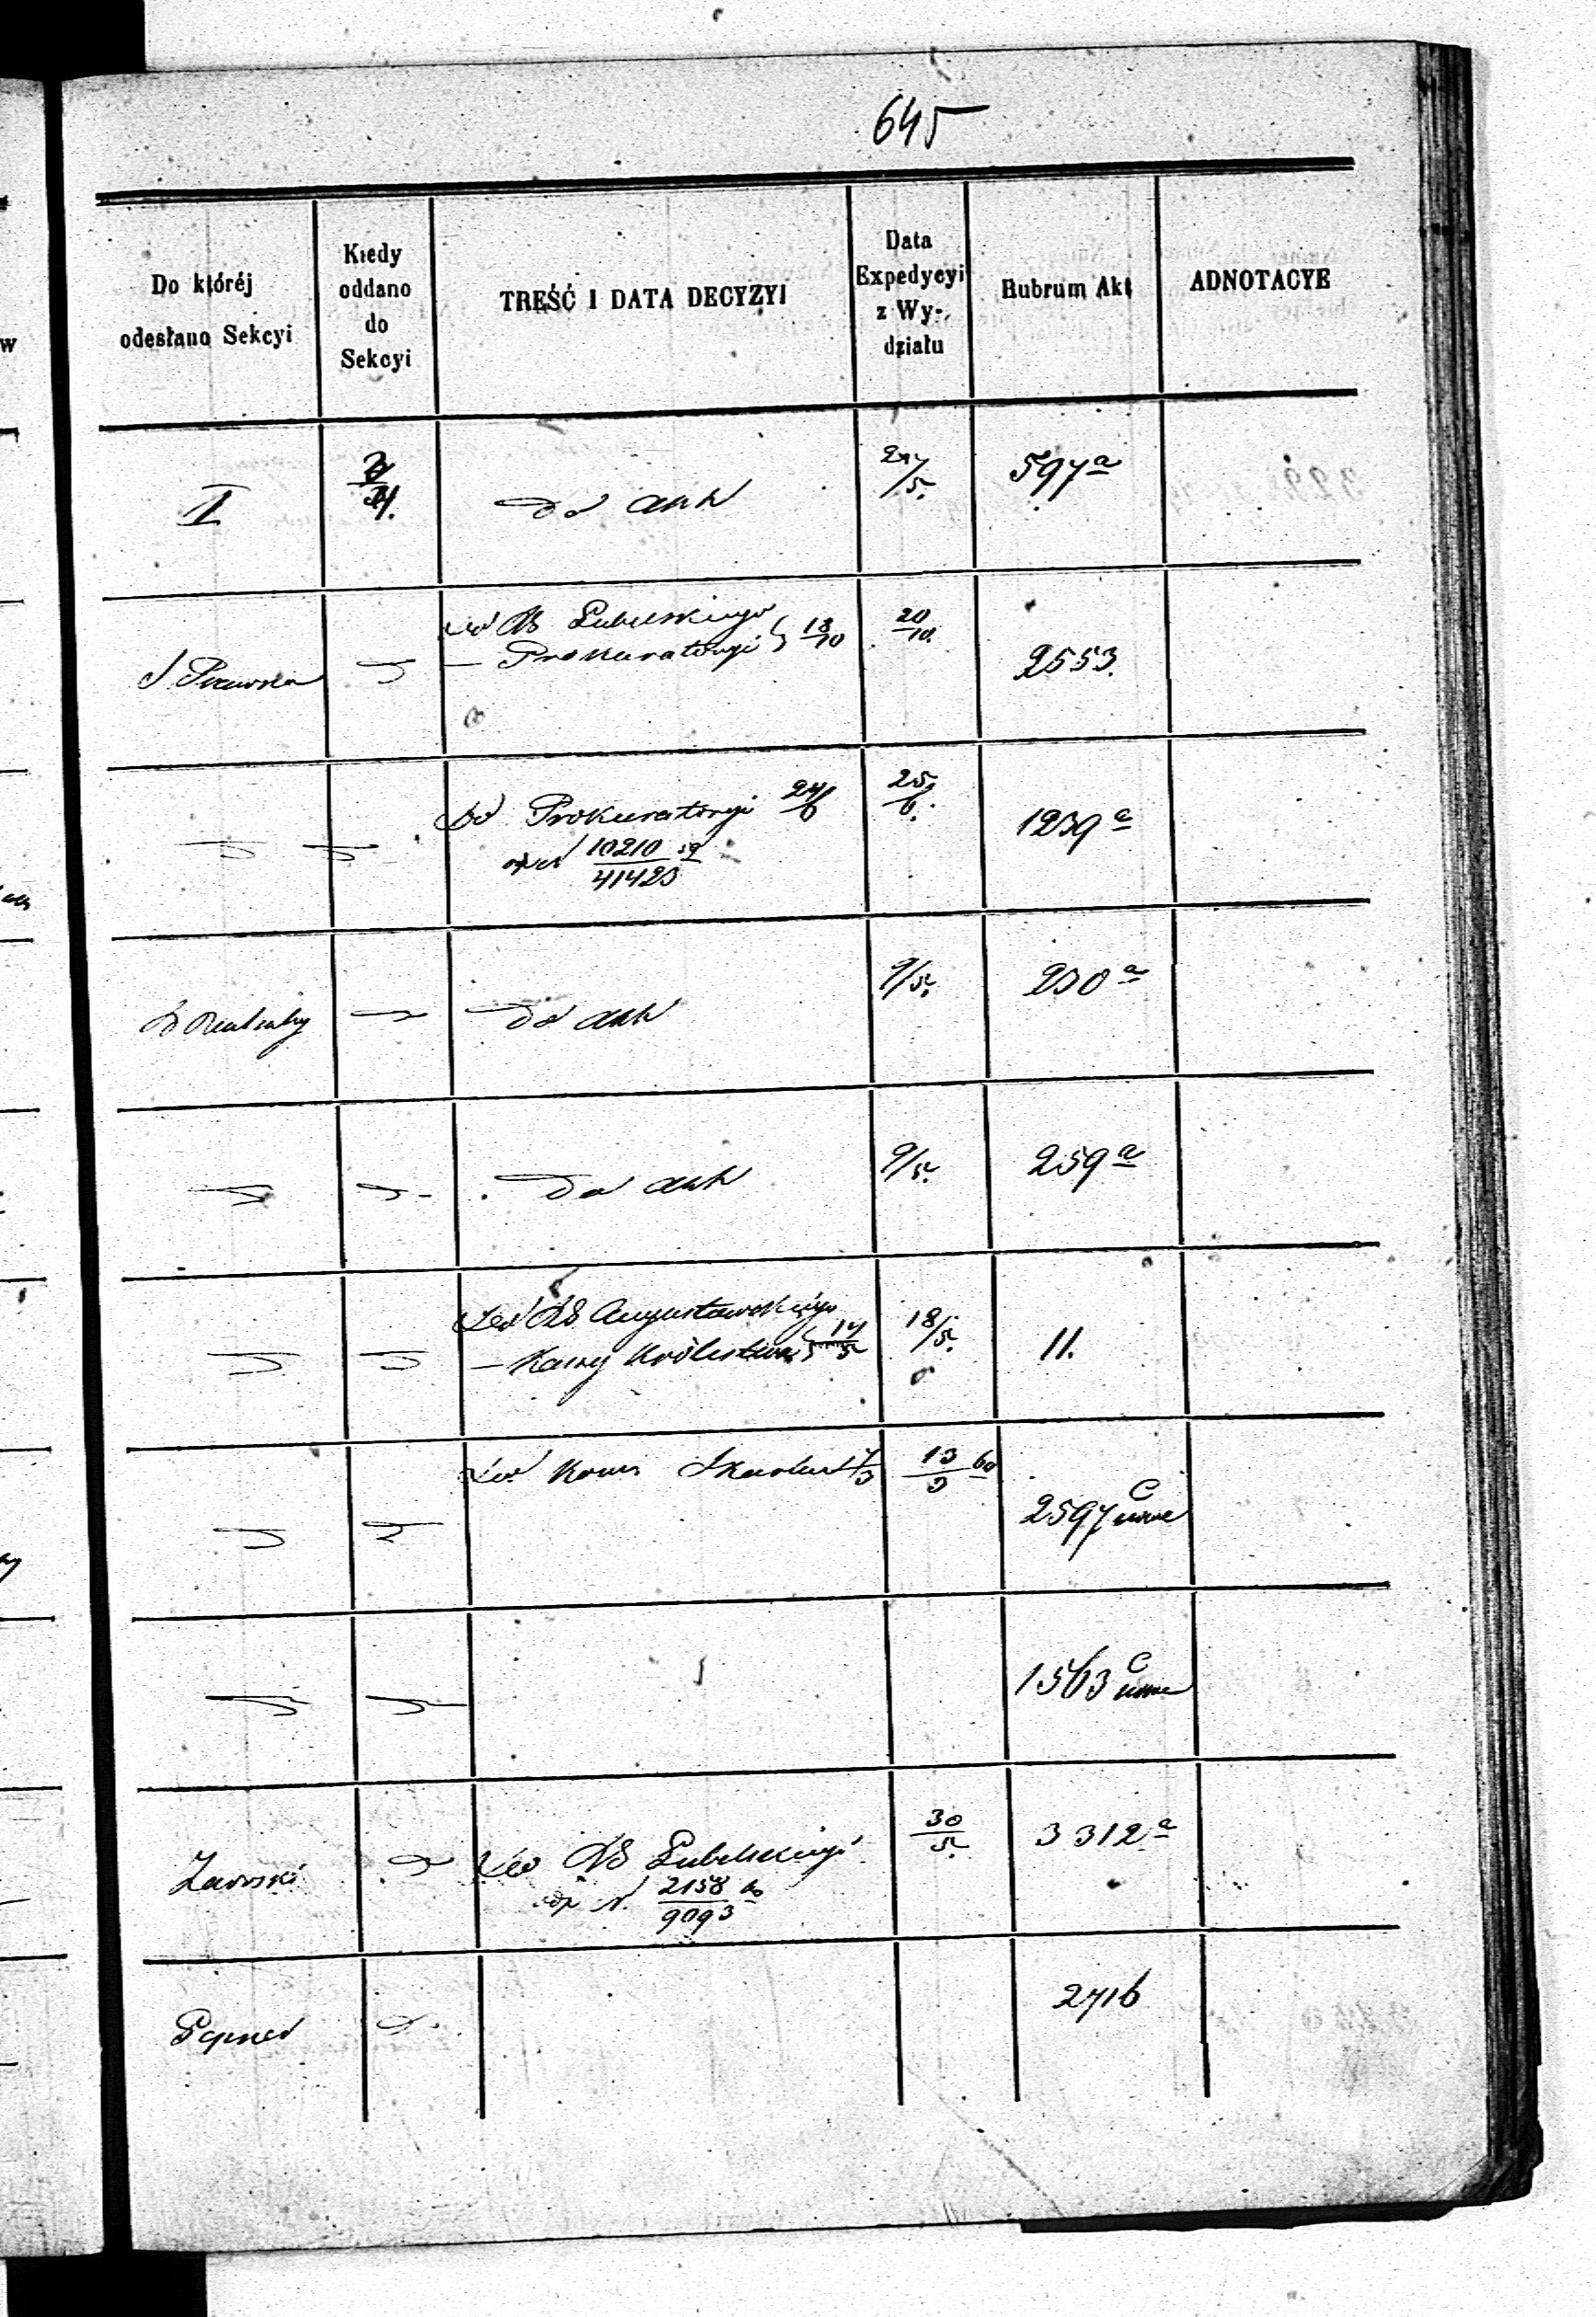 645
Do któréj
odesłano Sekcyi
Kiedy
oddano
do
Sekcyi
TREŚĆ I DATA DECYZYI
Data
Expedycyi
z Wy-
działu
Rubrum Akt
ADNOTACYE
I
do akt
27/5.
597 a
S. Prawna
do RG Lubelskiego
— Prokuratoryi } 18/10
20/10.
2553.
Do Prokuratoryi 24/6
10210 59
41423
25/6.
1239 a
do akt
9/5.
230 a
do akt
9/5.
259 a
Do RG Augustowskiego
— Kassy Królestwa } 17/5
18/5.
11.
Do Kom Skarbu 7/3
13/3 60
2597 C
1563 C
Do RG Lubelskiego
odp N. 2158 60
9093
30/5.
3312 a
2716